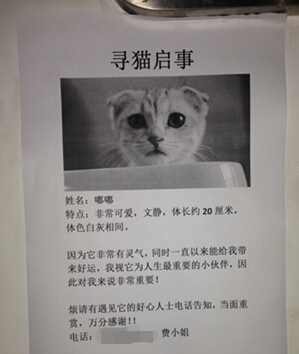 寻猫启事
姓名：嘟嘟
特点：非常可爱，文静，体长约 20 厘米，
体色白灰相间。
因为它非常有灵气，同时一直以来能给我带
来好运，我视它为人生最重要的小伙伴，因
此对我来说非常重要！
烦请有遇见它的好心人士电话告知，当面重
赏，万分感谢！！
电话：费小姐